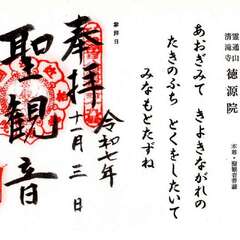 霊通山
清滝寺
徳源院
あおぎみて きよきながれの
たきのふち とくをしたいて
みなもとたずね
参拝日
奉拝
令和七年
十一月三日
聖観音